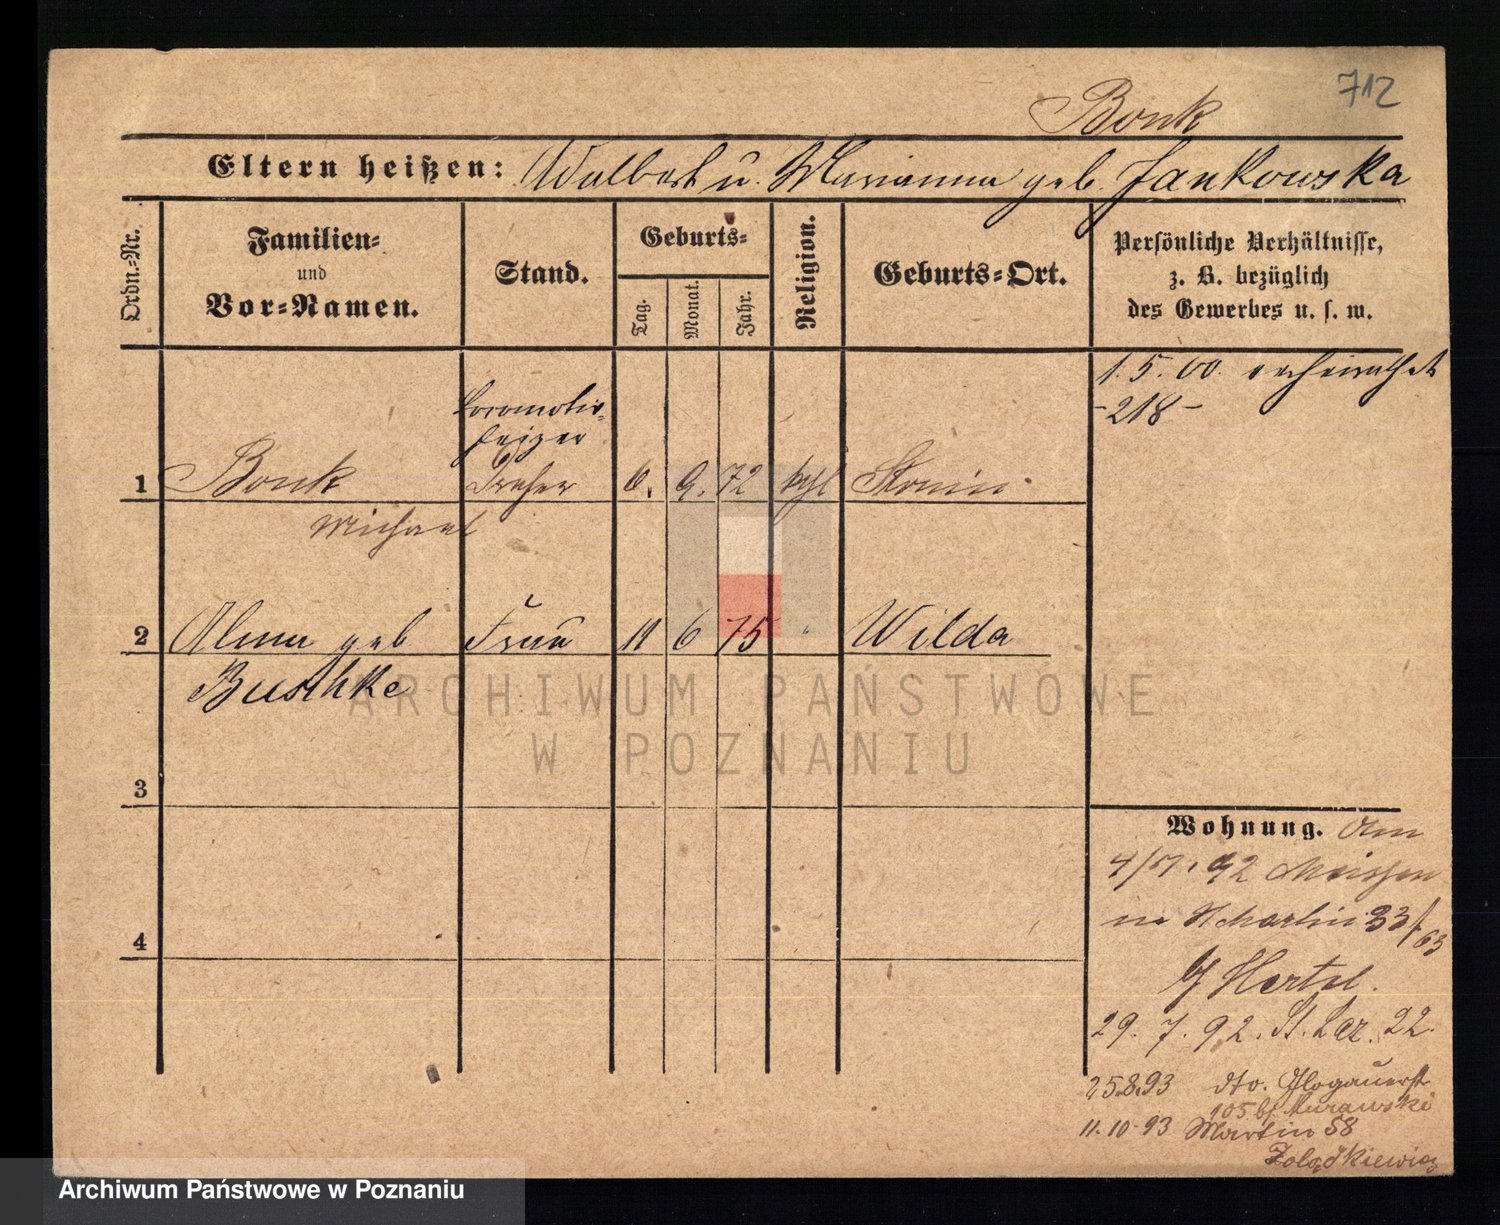 712
Bonk
Eltern heißen: Adalbert u. Marianna geb. Jankowska
Ordn.-Nr.
Familien-
und
Vor-Namen.
Stand.
Geburts-
Tag.
Monat.
Jahr.
Religion.
Geburts-Ort.
Persönliche Verhältnisse,
z. B. bezüglich
des Gewerbes u. s. w.
1. 5. 00. verheirathet
-218-
Locomotiv-
heizer
1 Bonk Dreher 6. 9. 72 kath
Michael
2 Alma geb Frau 11 6 75 " Wilda
Buschke
ARCHIWUM PAŃSTWOWE
W POZNANIU
3
4
Wohnung. Am
92
in St Martin 33/63
Hertel.
29. 7. 92. St. Laz. 22.
25.8.93 dto. Glogauerst
105 bei Murawski
11.10.93 Martin 58
Żołądkiewicz
Archiwum Państwowe w Poznaniu